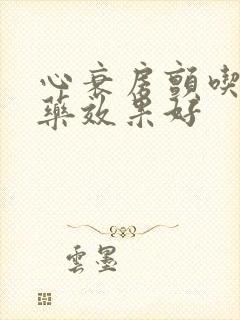 心衰房颤喫
藥效果好
雲墨